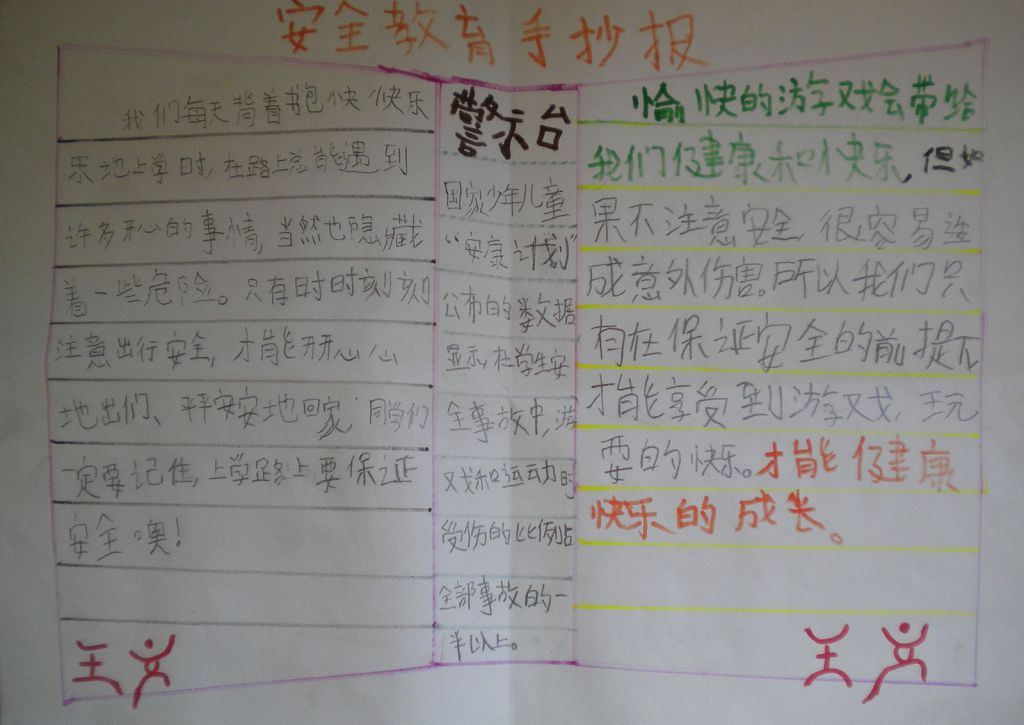 安全教育手抄报
我们每天背着书包快快乐
乐地上学时,在路上总能遇到
许多开心的事情,当然也隐藏
着一些危险。只有时时刻刻
注意出行安全,才能开开心心
地出们、平平安安地回家,同学们
一定要记住,上学路上要保证
安全噢!
警示台
国家少年儿童
“安康计划”
公布的数据
显示,在学生安
全事故中,游
戏和运动时
受伤的比例占
全部事故的一
半以上。
愉快的游戏会带给
我们健康和快乐,但如
果不注意安全,很容易造
成意外伤害。所以我们只
有在保证安全的前提下
才能享受到游戏、玩
耍的快乐。才能健康
快乐的成长。